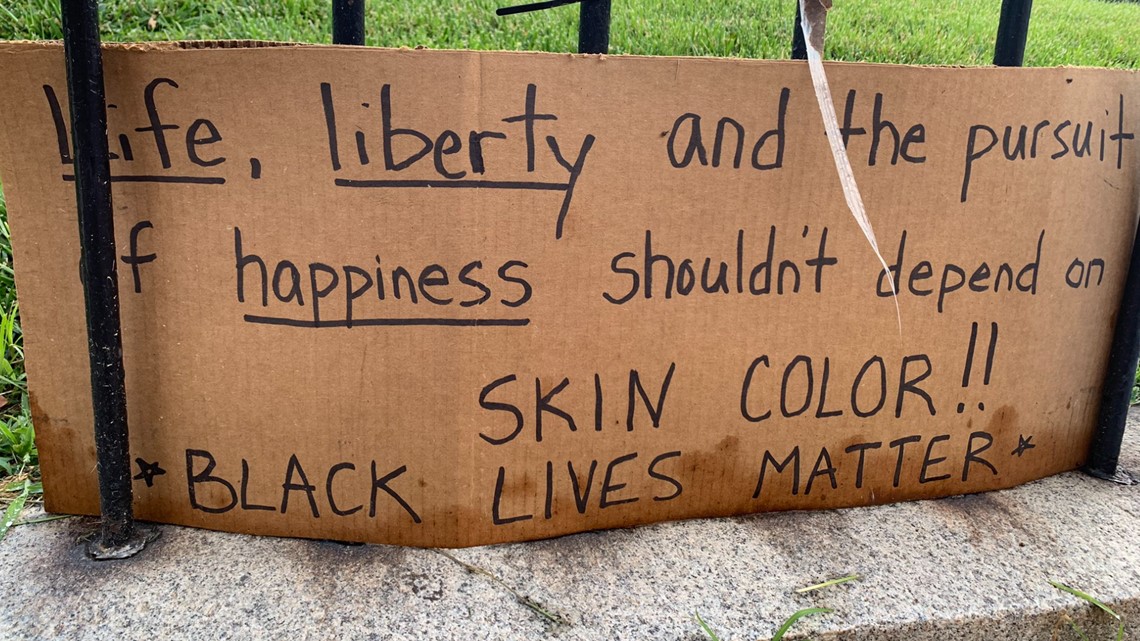 Life, liberty and the pursuit
of happiness shouldn't depend on
SKIN COLOR!!
*BLACK LIVES MATTER*